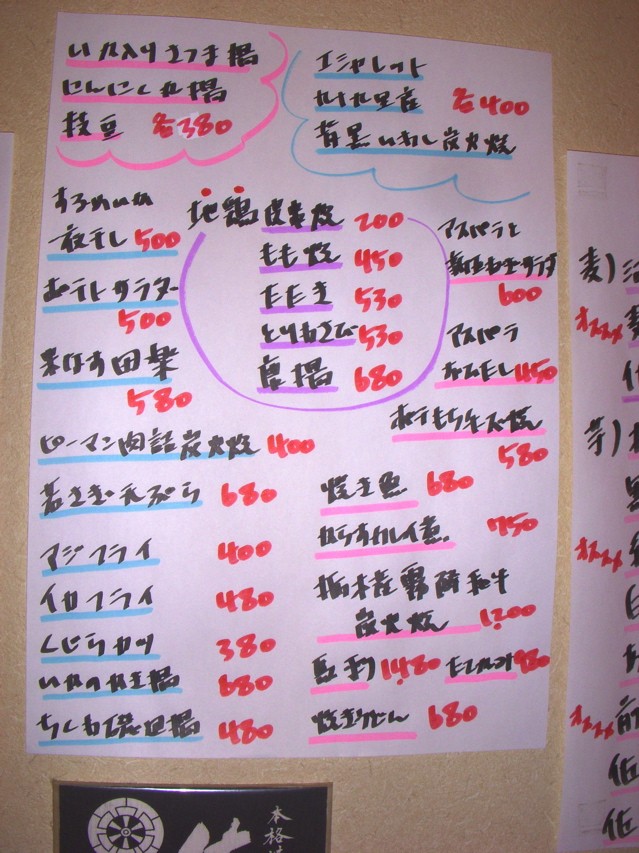 いか入りさつま揚
にんにく丸揚
枝豆 各380
エシャレット
各400
背黒いわし炭火焼
するめいか
一夜干し 500
サラダ
500
米なす田楽
580
地鶏 皮炭焼 200
もも焼 450
たたき 530
とりわさび 530
唐揚 680
アスパラと
サラダ
600
アスパラ
450
チーズ焼
580
ピーマン肉詰炭火焼 400
若さぎ天ぷら 680
アジフライ 400
イカフライ 480
くじらカツ 380
いかのかき揚 680
ちくわ磯辺揚 480
焼き魚 680
からすがれい煮 750
栃木産霧降和牛
炭火焼 1,200
1,480
980
焼きうどん 680
麦)
オススメ
芋)
オススメ
オススメ
前
佐
佐
本格